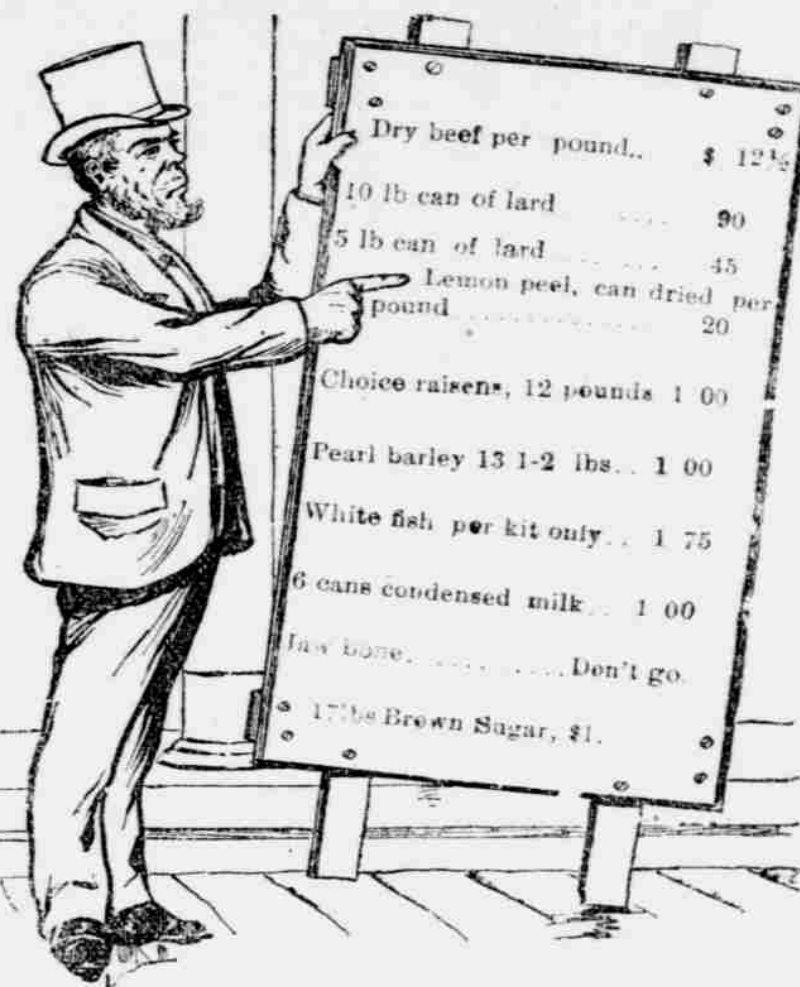 Dry beef per pound.. $ 12½
10 lb can of lard .... 90
5 lb can of lard ........ 45
Lemon peel, can dried per
pound .............. 20
Choice raisens, 12 pounds 1 00
Pearl barley 13 1-2 lbs.. 1 00
White fish per kit only.. 1 75
6 cans condensed milk.. 1 00
Jaw bone..............Don't go.
17lbs Brown Sugar, $1.